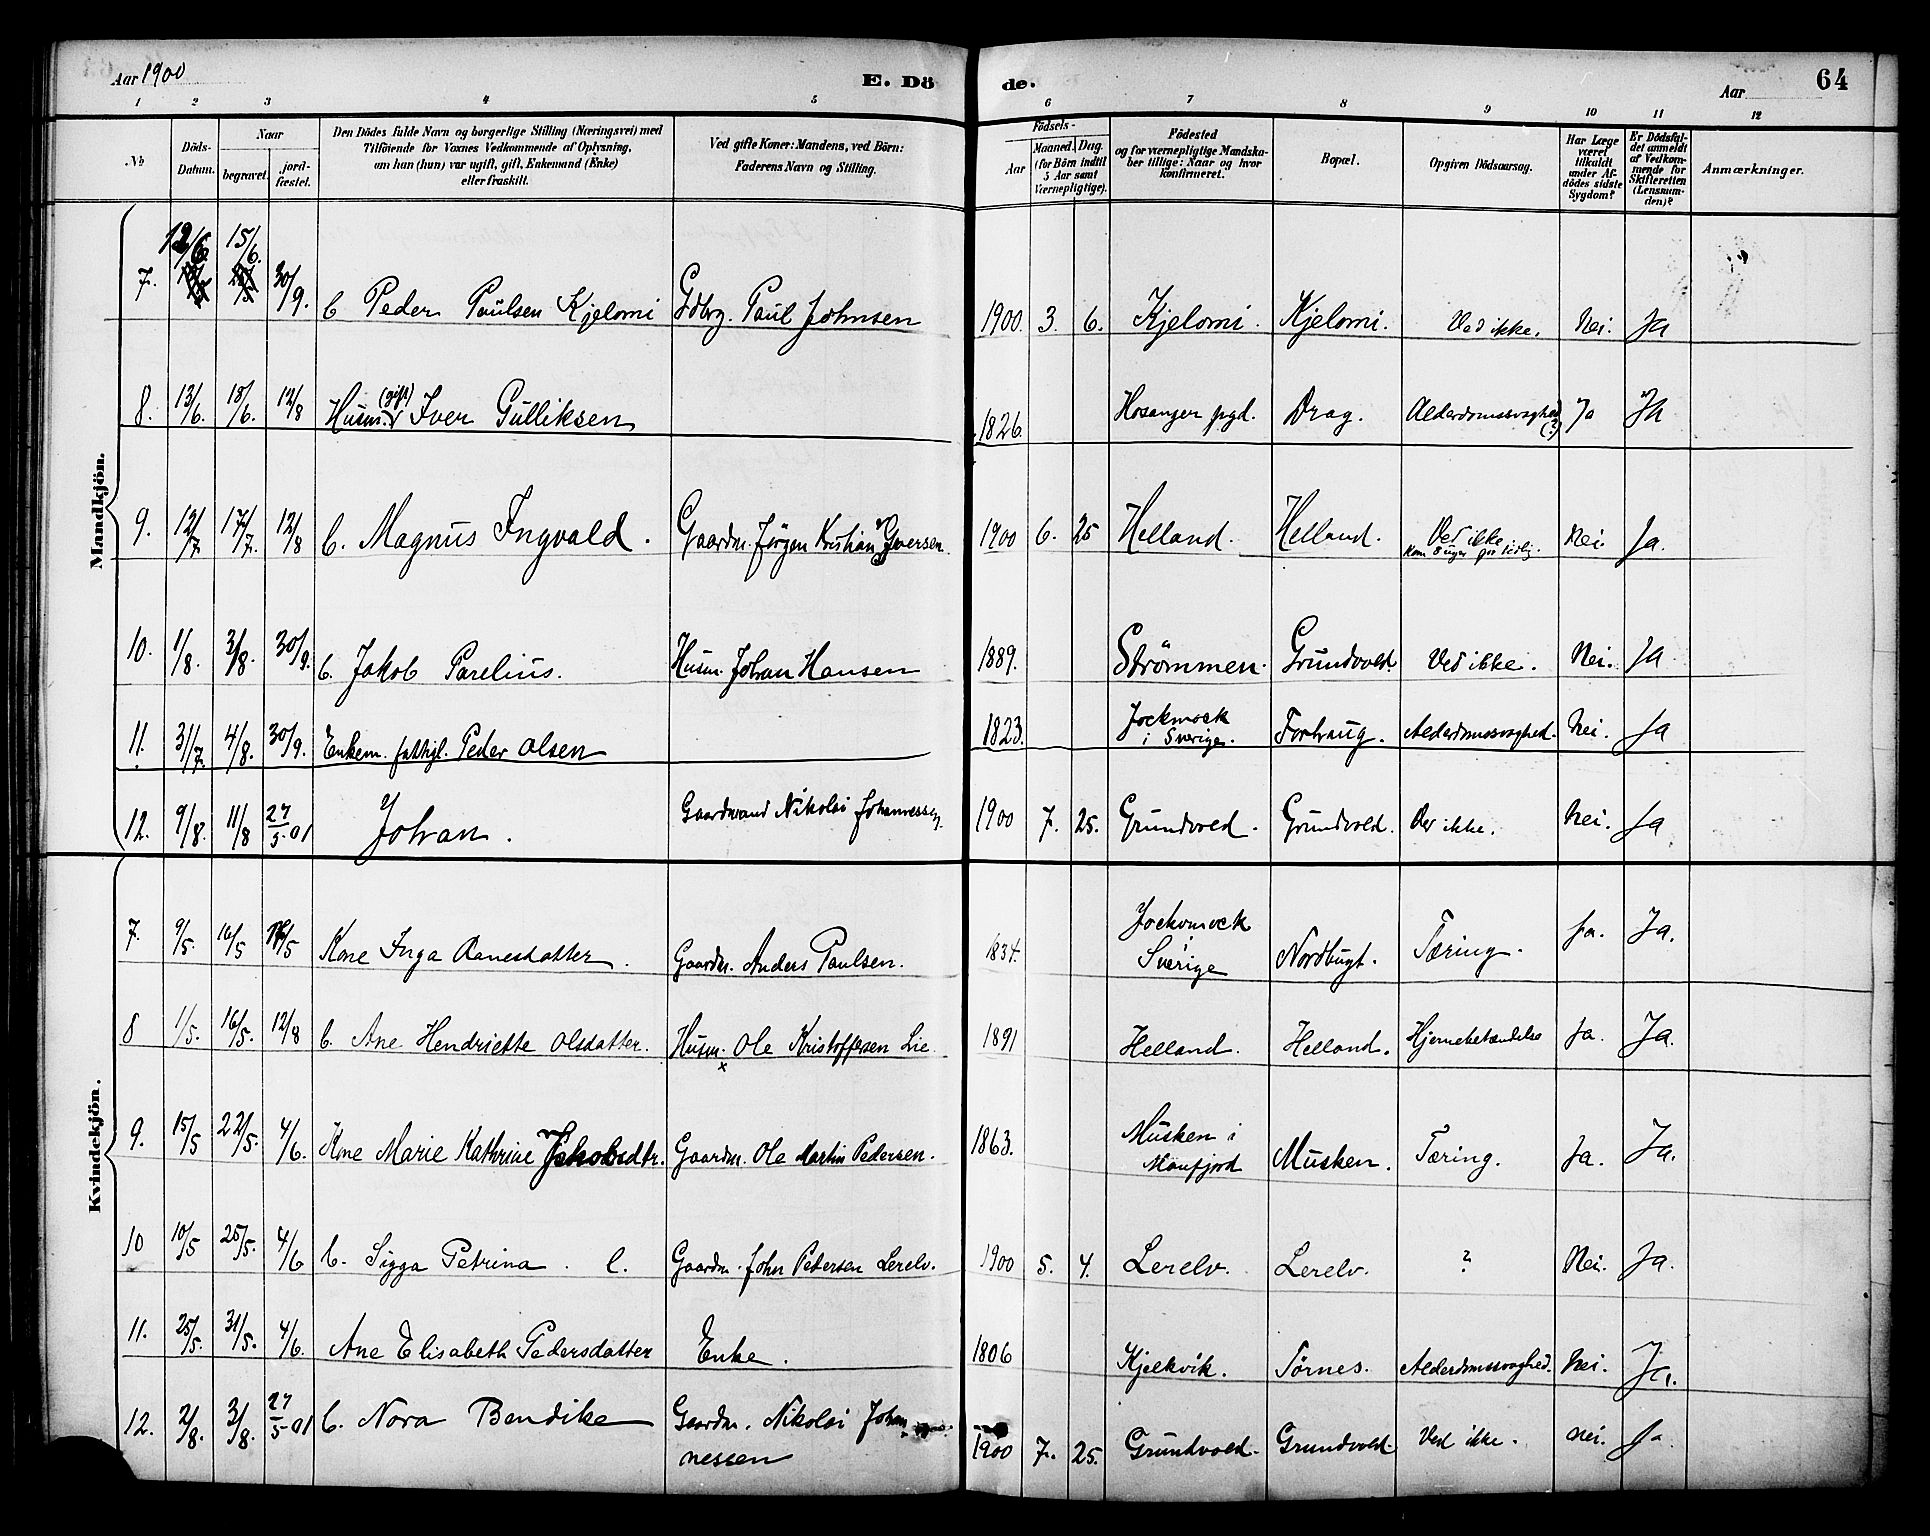 Aar 1900
E. Dö
de.
Aar
64
1 2 3 4 5 6 7 8 9 10 11 12
No
Döds-Datum.
Naar
begravet.
jord-fæstet.
Den Dödes fulde Navn og borgerlige Stilling (Næringsvei) med
Tilföiende for Voxnes Vedkommende af Oplysning,
om han (hun) var ugift, gift, Enkemand (Enke)
eller fraskilt.
Ved gifte Koner: Mandens, ved Börn:
Faderens Navn og Stilling.
Födsels-
Aar
Maaned. Dag.
(for Börn indtil
5 Aar samt
Værnepligtige).
Födested
og for værnepligtige Mandska-
ber tillige: Naar og hvor
konfirmeret.
Bopæl.
Opgiven Dödsaarsag.
Har Læge
været
tilkaldt
under Af-
dödes sidste
Sygdom?
Er Dödsfal-
det anmeldt
af Vedkom-
mende for
Skifteretten
(Lensman-
den)?
Anmærkninger.
Mandkjön.
7. 12/6 15/6. 30/9. b Peder Paulsen Kjelomi Gdbrg. Paul Johnsen 1900. 3. 6. Kjelomi. Kjelomi. Ved ikke. Nei. Ja
8. 13/6. 18/6. 12/8 Husm. (gift) Iver Gulliksen 1826. Hosanger pgd. Drag. Alderdomssvaghed (?) Ja Ja
9. 12/7 17/7. 12/8 b. Magnus Ingvald. Gaardm. Jørgen Kristian Iversen 1900 6. 25 Helland. Helland. Ved ikke
Kom 8 uger for tidlig. Nei. Ja.
10. 1/8. 3/8. 30/9. b. Jakob Parelius. Husm. Johan Hansen 1889. Strømmen. Grundvold. Ved ikke. Nei. Ja
11. 31/7. 4/8. 30/9. Enkem. fattigl. Peder Olsen 1823. Jockmock
i Sverige. Forhaug. Alderdomssvaghed. Nei. Ja
12. 9/8. 11/8 27/5-01 Johan. Gaardmand Nikolai Johannessen. 1900 7. 25. Grundvold. Grundvold. Ved ikke. Nei. Ja
Kvindekjön.
7. 9/5. 16/5 16/5 Kone Inga Aanesdatter. Gaardm. Anders Paulsen. 1834. Jockmock
Sverige Nordbugt. Tæring. Ja. Ja.
8 1/5. 16/5. 12/8 b. Ane Hendriette Olsdatter. Husm. Ole Kristoffersen Lie. 1891 Helland. Helland. Hjernebetændelse Ja. Ja.
x
9. 15/5 22/5. 4/6. Kone Marie Kathrine Jakobsdtr. Gaardm. Ole Martin Pedersen. 1863. Musken i
Manfjord Musken. Tæring. Ja. Ja.
10 10/5 25/5. 4/6 b. Sigga Petrina. l. Gaardm. John Pedersen Lerelv. 1900 5. 4. Lerelv. Lerelv. ? Nei. Ja.
11. 25/5. 31/5. 4/6. Ane Elisabeth Pedersdatter Enke. 1806 Kjelkvik. Tørnes. Alderdomssvaghed. Nei. Ja.
12. 2/8. 3/8. 27/5-01 b. Nora Bendike Gaardm. Nikolai Johan
nessen 1900 7. 25. Grundvold. Grundvold. Ved ikke. nei. Ja